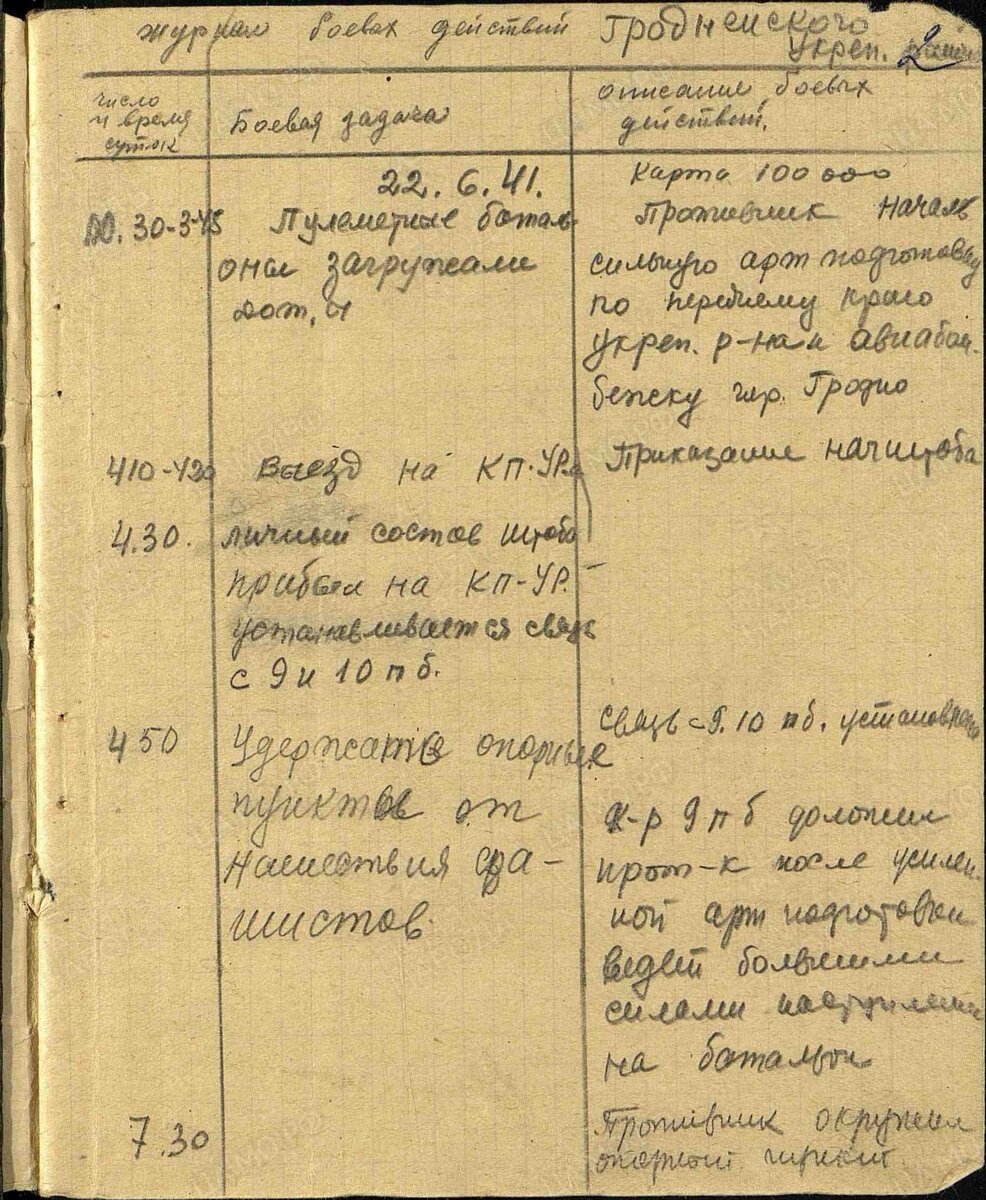 журнал боевых действий Гродненского
укреп.
2
число
и время
суток
Боевая задача
описание боевых
действий.
22. 6. 41.
Карта 100000
00. 30-3-45
Пулеметные баталь-
оны загружали
дот, ы
Противник начал
сильную арт подготовку
по переднему краю
укреп. р-на и авиабом-
бежку гор. Гродно
410-420
Выезд на КП-УРа
Приказание начштаба
4.30.
личный состав штаба
прибыл на КП-УР.
устанавливается связь
с 9 и 10 пб.
связь с 9. 10 пб. установлена
4 50
Удержание опорных
пунктов от
нашествия фа-
шистов.
к-р 9 пб доложил
прот-к после усилен-
ной арт подготовки
ведет большими
силами наступление
на батальон
7.30
Противник окружил
опорный пункт